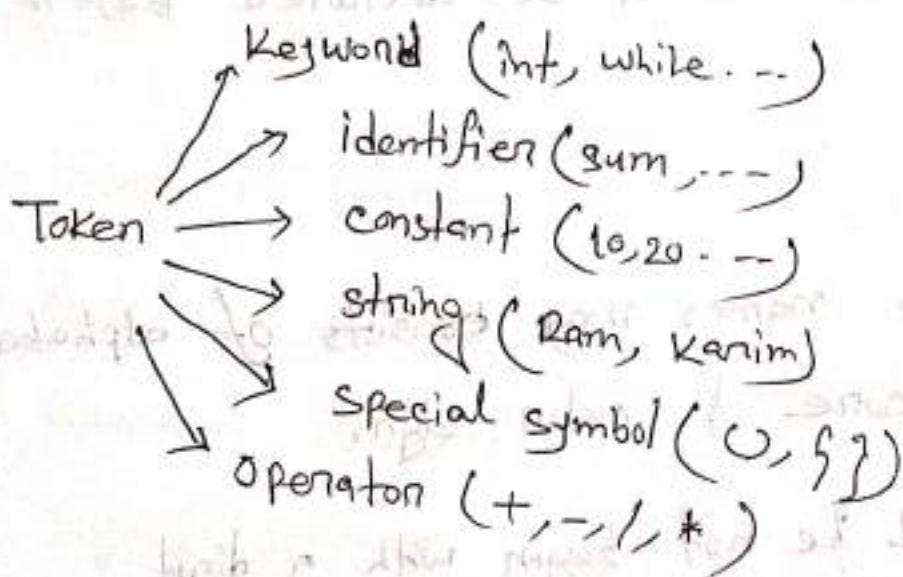 Keyword (int, while. --)
identifier (sum, ----)
Token
constant (10,20. --)
string (Ram, Karim)
special symbol ( (), { })
operator (+, -, /, *)